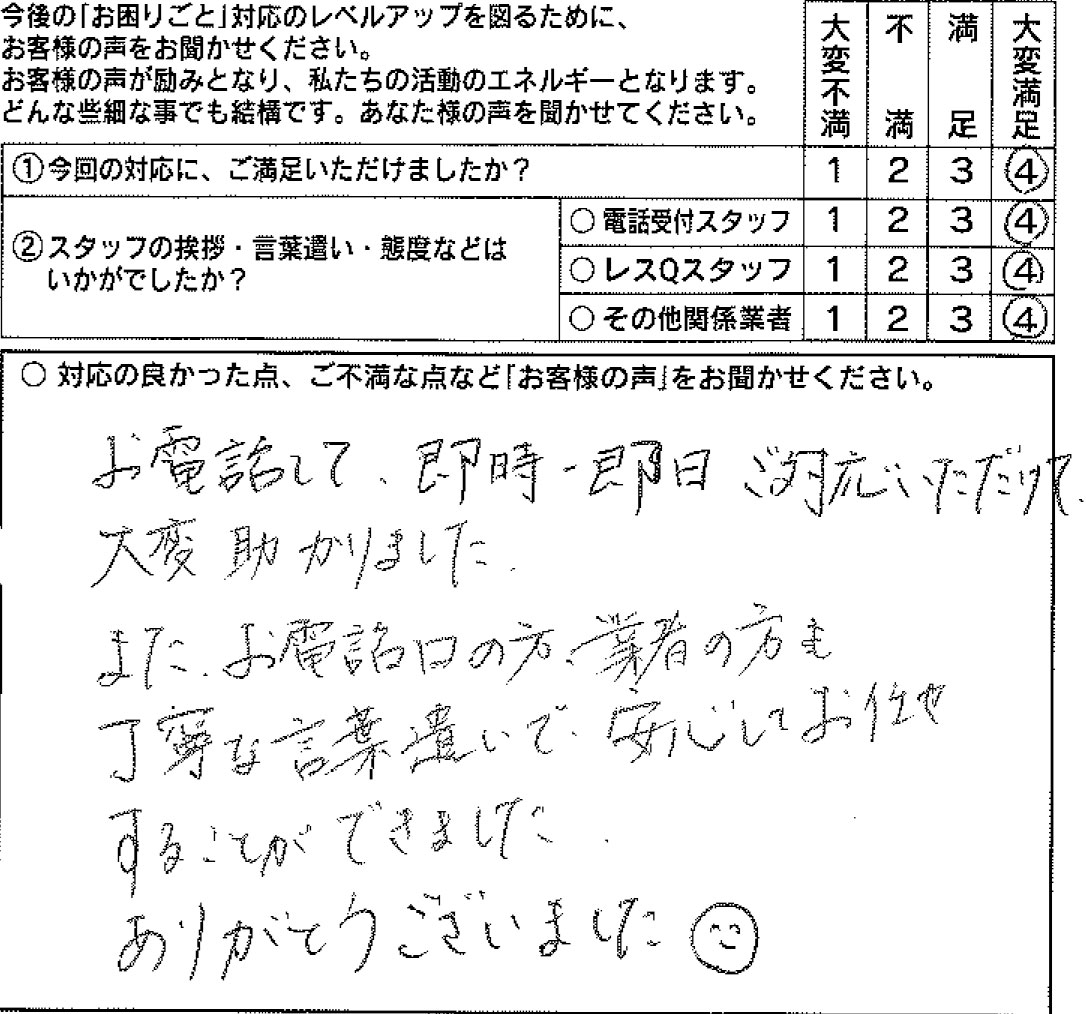 今後の「お困りごと」対応のレベルアップを図るために、
お客様の声をお聞かせください。
お客様の声が励みとなり、私たちの活動のエネルギーとなります。
どんな些細な事でも結構です。あなた様の声を聞かせてください。
大変不満 不満 満足 大変満足
①今回の対応に、ご満足いただけましたか？ 1 2 3 ④
②スタッフの挨拶・言葉遣い・態度などは
いかがでしたか？
○電話受付スタッフ 1 2 3 ④
○レスQスタッフ 1 2 3 ④
○その他関係業者 1 2 3 ④
○ 対応の良かった点、ご不満な点など「お客様の声」をお聞かせください。
お電話して、即時・即日ご対応いただけて、
大変助かりました。
また、お電話口の方、業者の方も
丁寧な言葉遣いで、安心してお任せ
することができました。
ありがとうございました